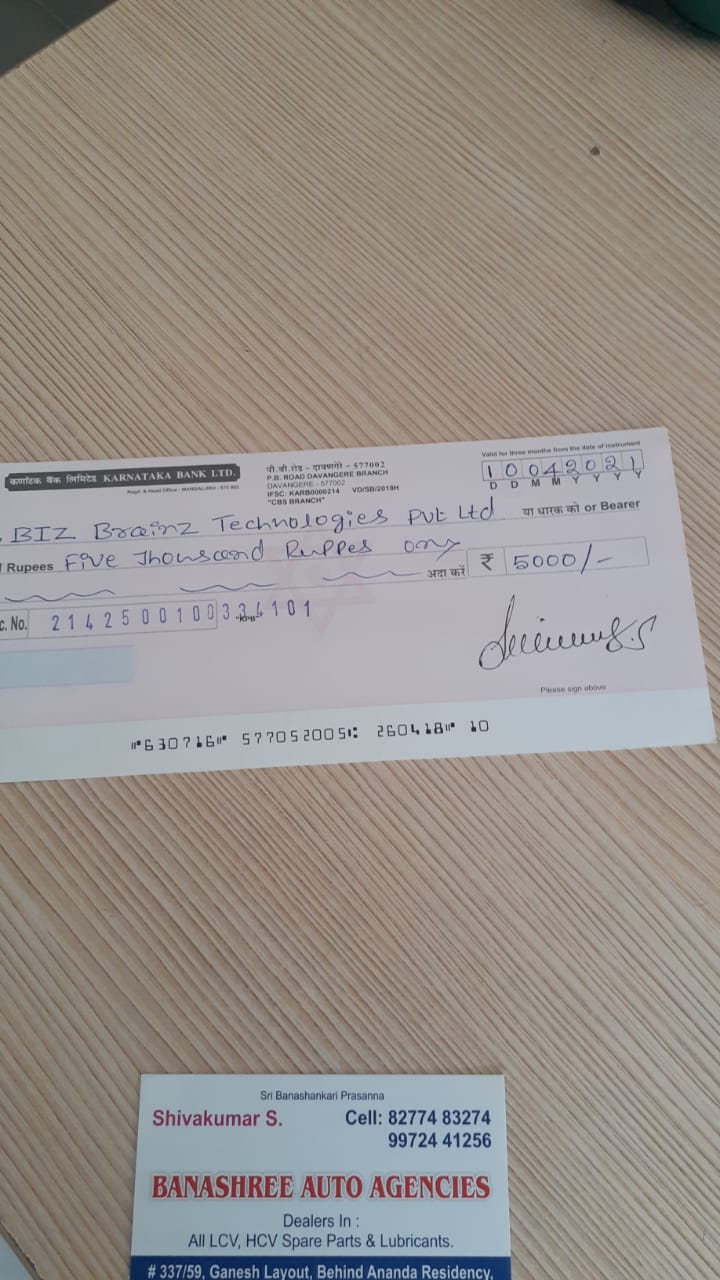 कर्णाटक बैंक लिमिटेड KARNATAKA BANK LTD.
Regd. & Head Office : MANGALURU - 575 002.
पी.बी.रोड - दावणगेरे - 577002
P.B. ROAD DAVANGERE BRANCH
DAVANGERE - 577002
IFSC: KARB0000214 VD/SB/2018H
"CBS BRANCH"
Valid for three months from the date of instrument
10042021
D D M M Y Y Y Y
BIZ Brainz Technologies Pvt Ltd या धारक को or Bearer
Rupees Five Thousand Ruppes ony
अदा करें ₹ 5000/-
c. No. 2142500100334101
Please sign above
⑈630716⑈ 577052005⑆ 260418⑈ 10
Sri Banashankari Prasanna
Shivakumar S. Cell: 82774 83274
99724 41256
BANASHREE AUTO AGENCIES
Dealers In :
All LCV, HCV Spare Parts & Lubricants.
# 337/59, Ganesh Layout, Behind Ananda Residency,